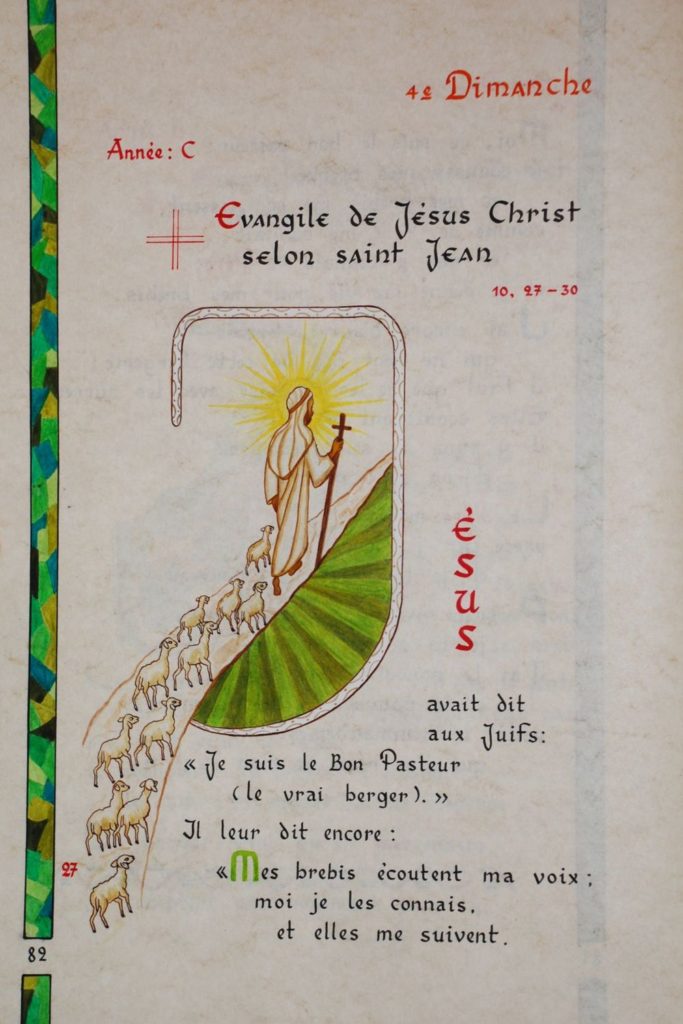 4e Dimanche
Année: C
Evangile de Jésus Christ
selon saint Jean
10, 27-30
J
É
S
U
S
avait dit
aux Juifs:
« Je suis le Bon Pasteur
(le vrai berger). »
Il leur dit encore :
27 «Mes brebis écoutent ma voix ;
moi je les connais,
et elles me suivent.
82